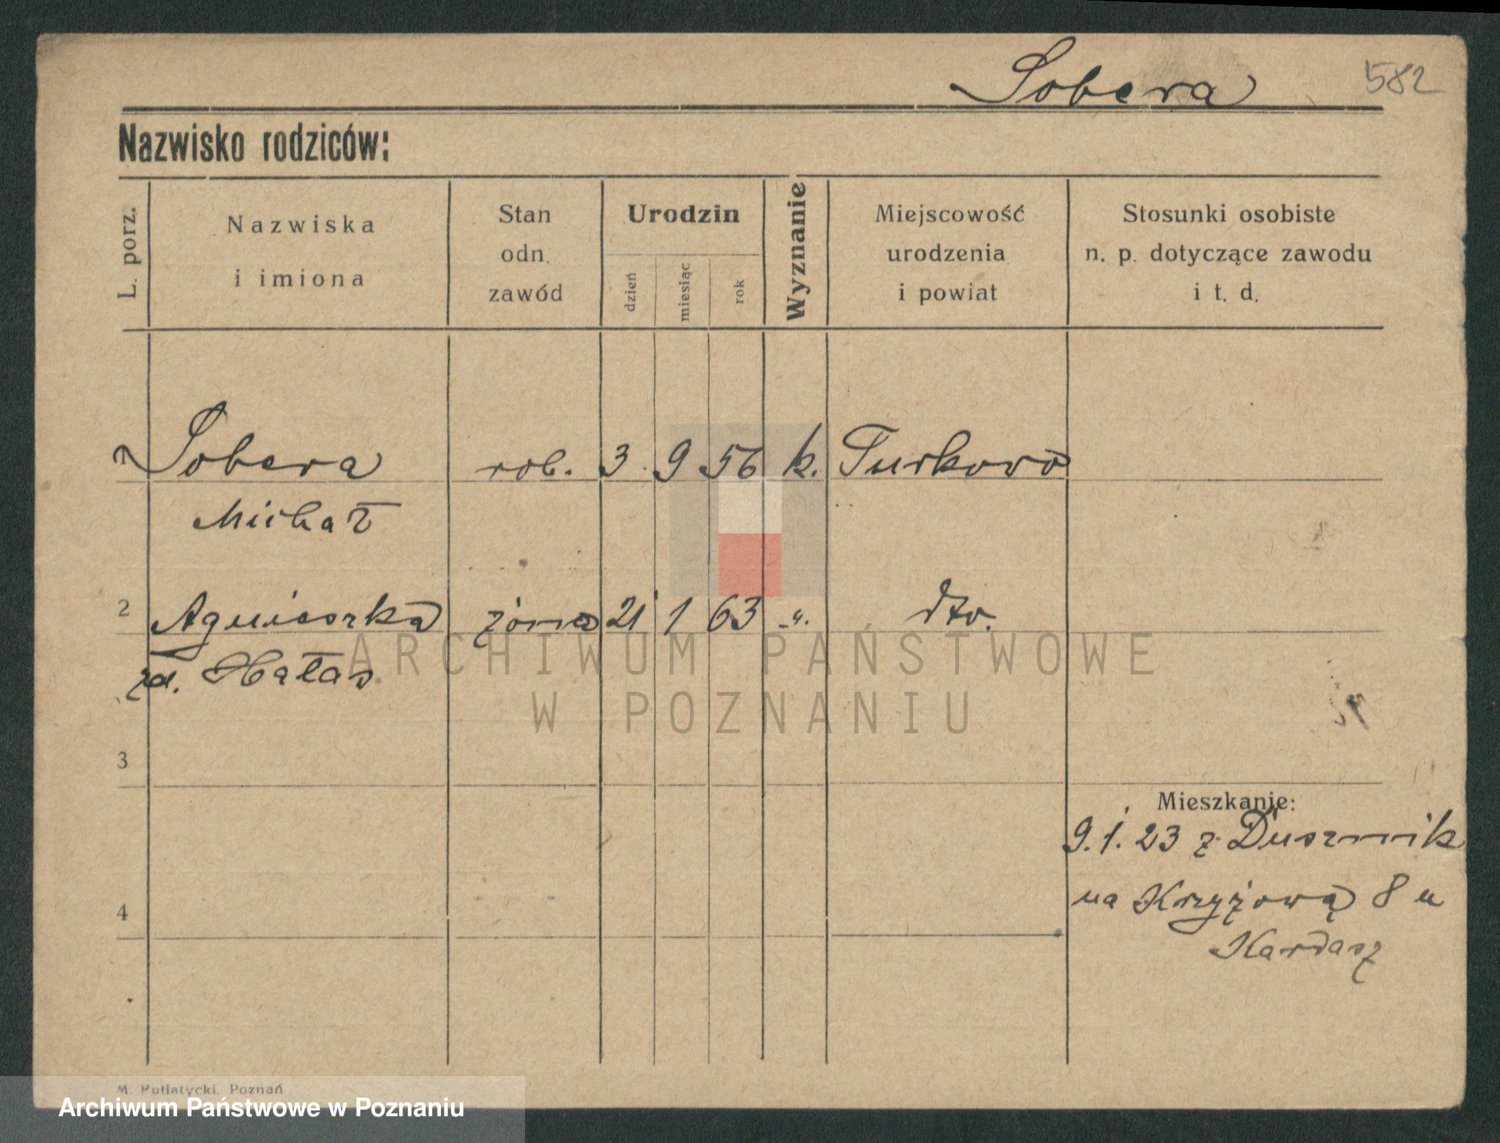 Sobera 582
Nazwisko rodziców:
L. porz.
Nazwiska
i imiona
Stan
odn.
zawód
Urodzin
dzień
miesiąc
rok
Wyznanie
Miejscowość
urodzenia
i powiat
Stosunki osobiste
n. p. dotyczące zawodu
i t. d.
1 Sobera rob. 3. 9 56 k. Turkowo
Michał
2 Agnieszka żona 21 1 63 -"- dto.
zd. Hałas
ARCHIWUM PAŃSTWOWE
W POZNANIU
3
Mieszkanie:
9.1.23 z Dusznik
na Krzyżową 8 u
Kardasz
4
M. Putiatycki, Poznań
Archiwum Państwowe w Poznaniu